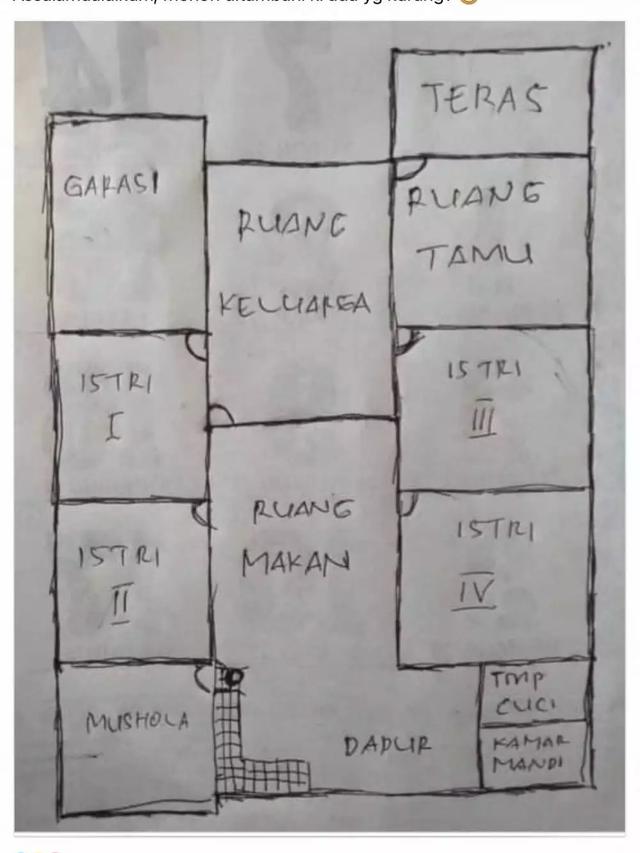 Assalamualaikum, mohon ditambahi ada yg kurang?
TERAS
GARASI
RUANG
KELUARGA
RUANG
TAMU
ISTRI
I
ISTRI
III
RUANG
MAKAN
ISTRI
II
ISTRI
IV
MUSHOLA
DAPUR
TMP
CUCI
KAMAR
MANDI